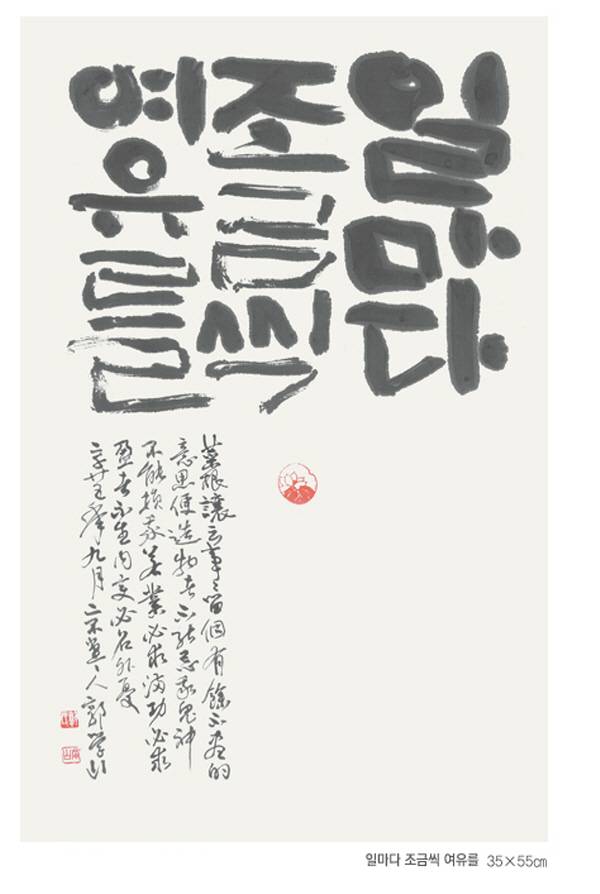 일마다
조금씩
여유를
菜根譚云事事留個有餘不盡的
意思便造物者不能忌我鬼神
不能損我若業必求滿功必求
盈者不生內變必召外憂
九月 人郭
일마다 조금씩 여유를 35×55㎝